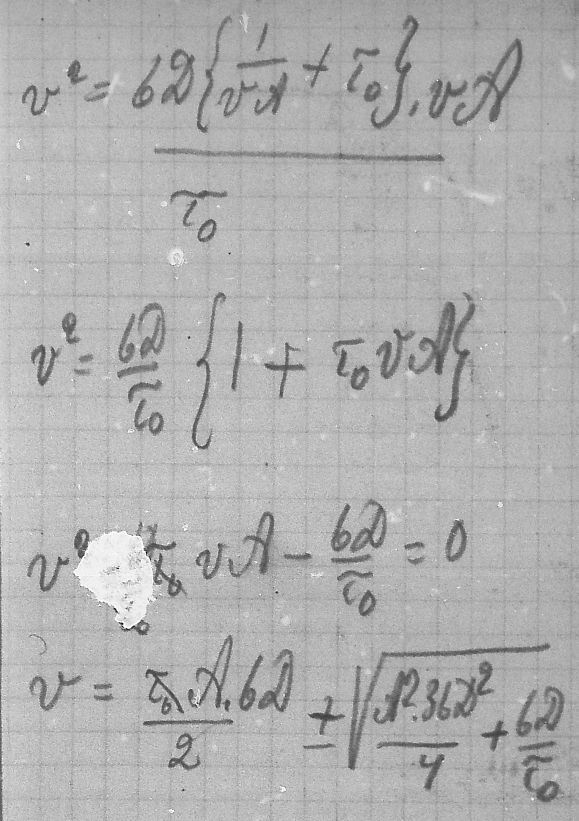 v² = 6D{1/vA + τ₀}·vA / τ₀
v² = 6D/τ₀ {1 + τ₀vA}
v² τ₀ vA − 6D/τ₀ = 0
v = τ₀A·6D/2 ± √(A²·36D²/4 + 6D/τ₀)